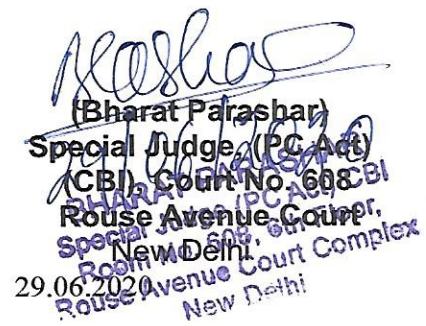 Parashar
(Bharat Parashar)
29/06/2020
Special Judge, (PC Act)
(CBI), Court No. 608
Rouse Avenue Court
New Delhi
29.06.2020
BHARAT PARASHAR
Special Judge (PC Act) CBI
Room No. 608, 6th Floor,
Rouse Avenue Court Complex
New Delhi